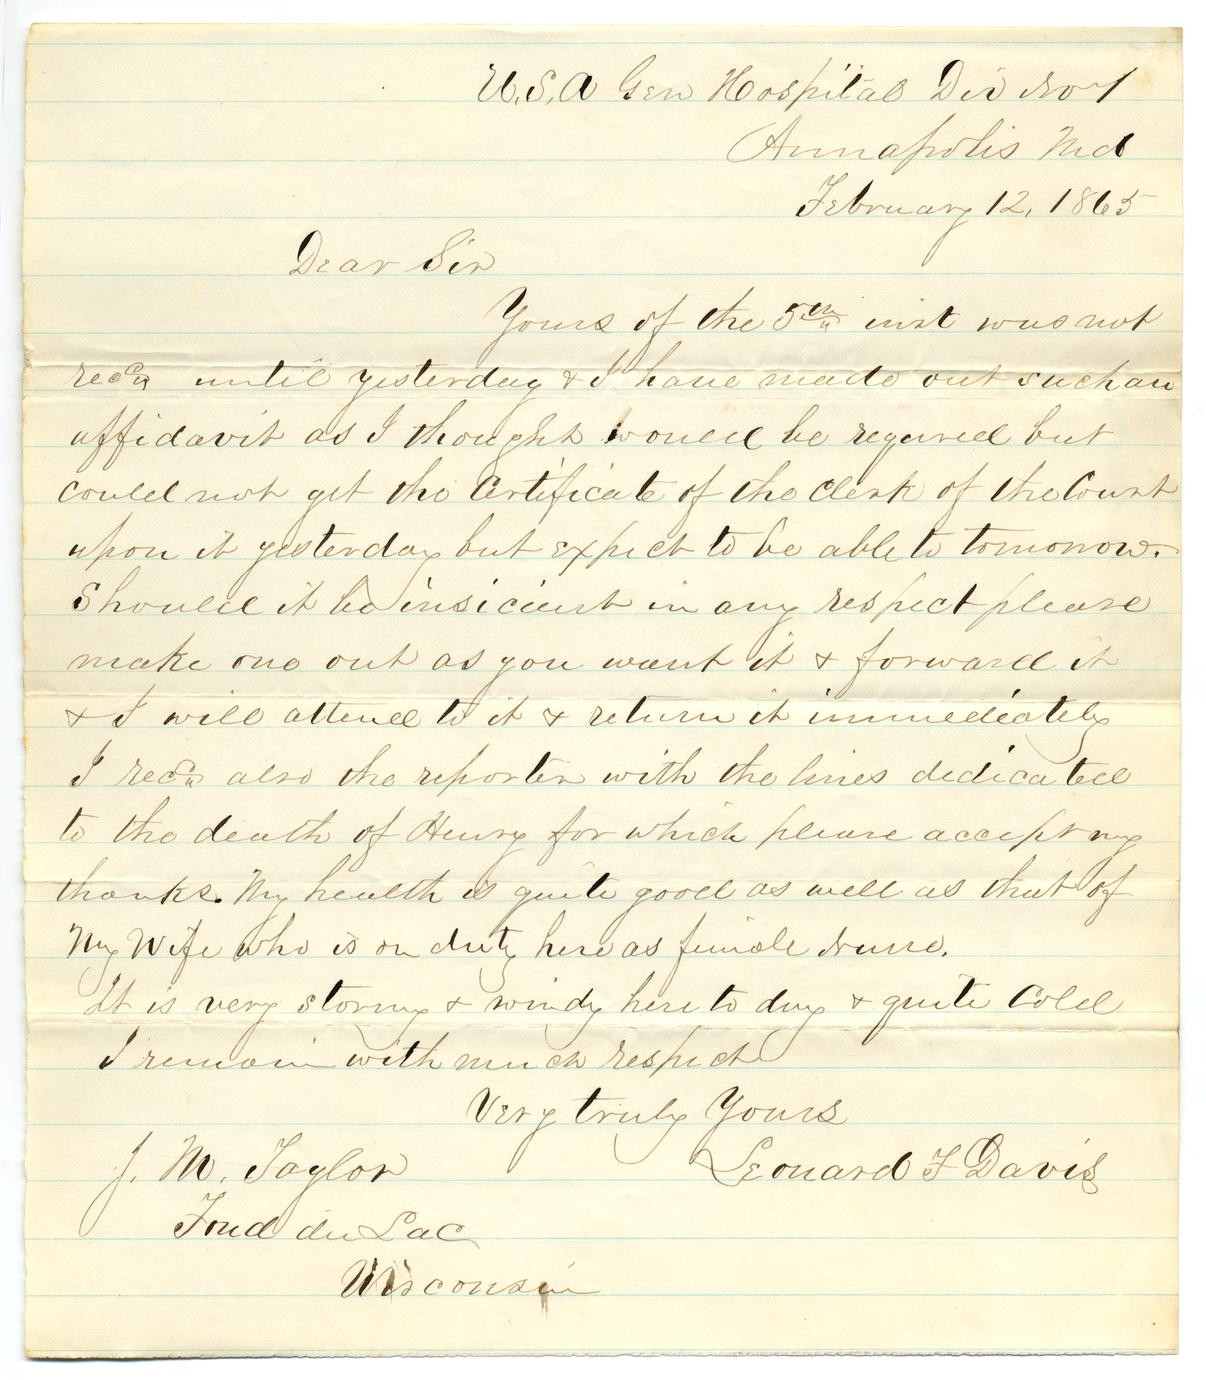 U.S.A Gen Hospital Div No 1
Annapolis Md
February 12, 1865
Dear Sir
Yours of the 5th inst was not
recd until yesterday & I have made out such an
affidavit as I thought would be required but
could not get the Certificate of the Clerk of the Court
upon it yesterday but expect to be able to tomorrow.
Should it be insicient in any respect please
make one out as you want it & forward it
& I will attend to it & return it immediately
I recd also the reporter with the lines dedicated
to the death of Henry for which please accept my
thanks. My health is quite good as well as that of
My Wife who is on duty here as female Nurse.
It is very stormy & windy here to day & quite Cold
I remain with much respect
Very truly Yours
J. M. Taylor Leonard F Davis
Fond du Lac
Wisconsin